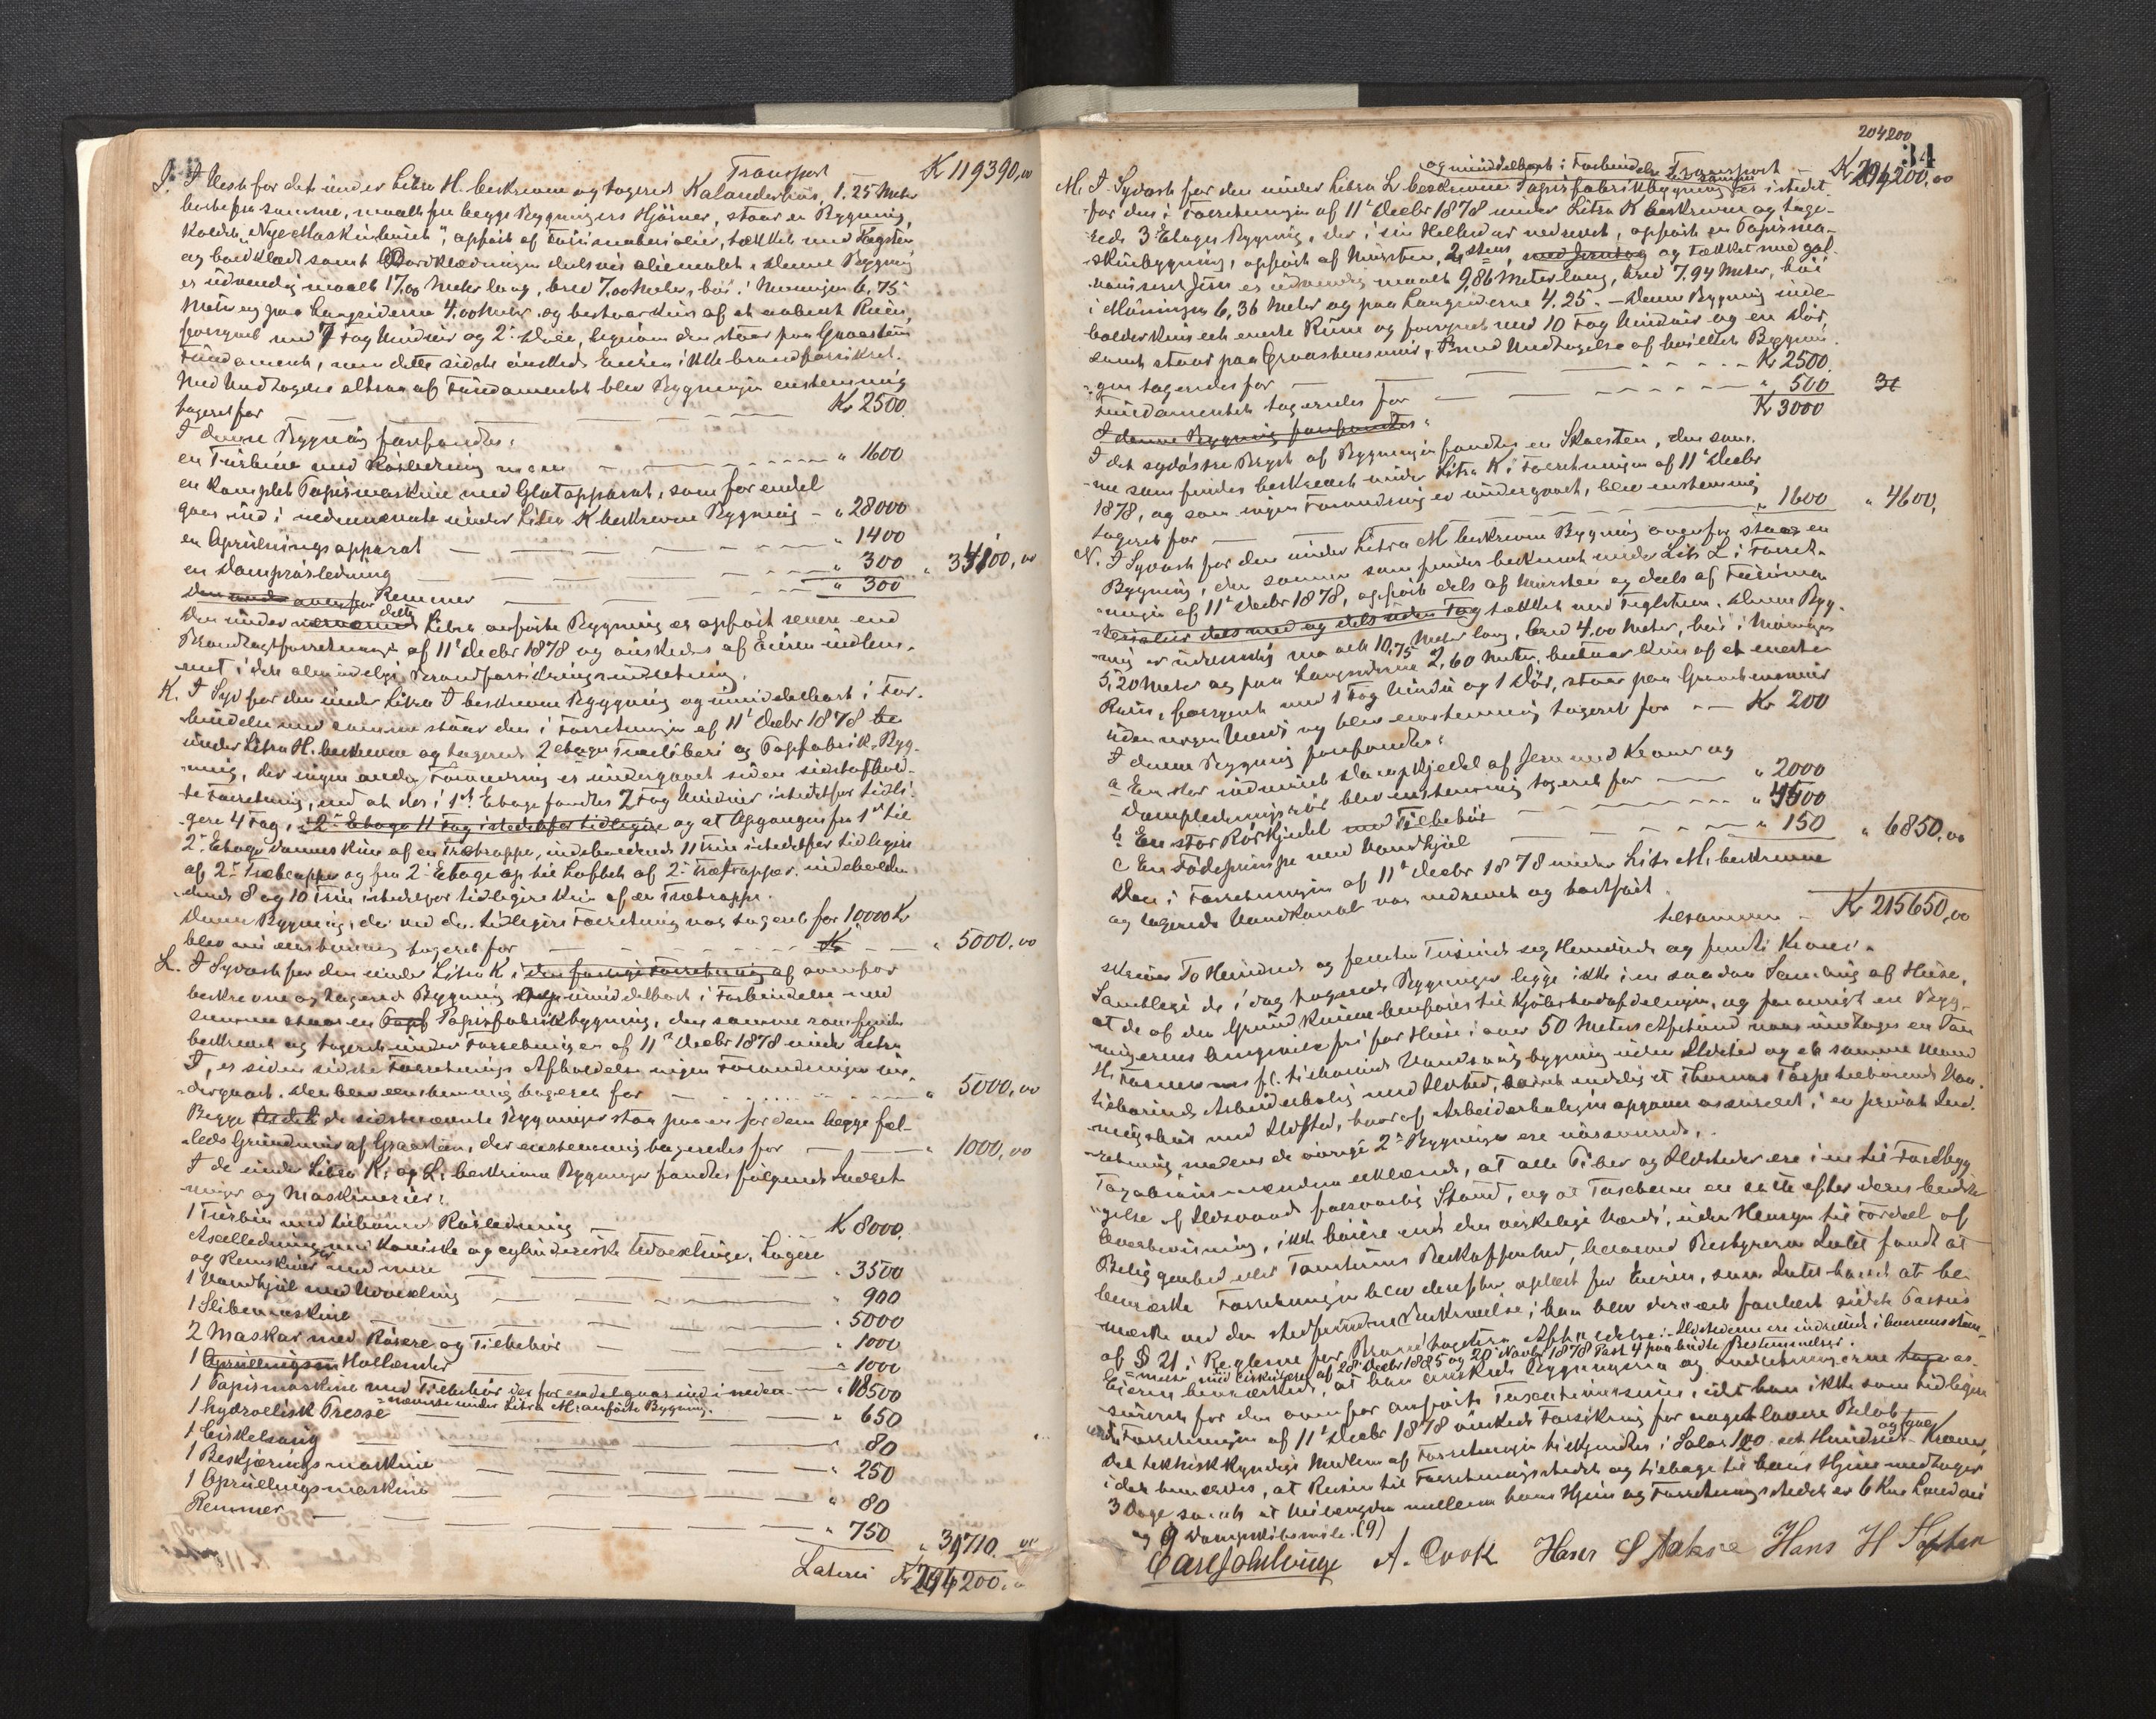 Transport K 119390,00
J. I Vest for det under Litra H. beskrevne og taxerede Kalanderhuus, 1.25 Meter
borte fra samme, maalt fra begge Bygningers Hjørner, staar en Bygning,
kaldet "Nye Maskinhuus", opført af Tømmermaterialier, tækket med Tagsten
og bordklædt samt Bordklædningen deelsvis oliemalet. Denne Bygning
er udvendig maalt 17,00 Meter lang, bred 7,00 Meter, høi i Mønningen 6,75
Meter og paa Langsiderne 4,00 Meter og bestaar kun af et aabent Rum,
forsynet med 7 Fag Vinduer og 2 Døre, ligesom den staar paa Graasteens
Fundament, men dette sidste ønskede Eieren ikke brandforsikret.
Med Undtagelse altsaa af Fundamentet blev Bygningen enstemmig
taxeret for Kr 2500.
I denne Bygning forefandtes:
en Turbine med Rørledning m.m. " 1600
en komplet Papirmaskine med Glatapparat, som for endel
gaar ind i nedennævnte under Litra K beskrevne Bygning " 28000
en Oprulningsapparat " 1400
en Damprørledning " 300 " 34100,00
Den under ovenfor Remmer " 300
Den under nævnte dette Litra anførte Bygning er opført senere end
Brandtaxtforretningen af 11te Decbr 1878 og ønskedes af Eieren indlem-
met i den almindelige Brandforsikringsindretning.
K. I Syd for den under Litra J beskrevne Bygning og umiddelbart i For-
bindelse med samme staar den i Forretningen af 11te Decbr 1878 be
under Litra H. beskrevne og taxerede 2 etages Træsliberi og Papfabrik-Byg-
ning, der ingen anden Forandring er undergaaet siden sidst afhold-
te Forretning, end at der i 1ste Etage fandtes 7 Fag Vinduer istedetfor tidli-
gere 4 Fag, i 2den Etage 11 Fag istedetfor tidligere og at Opgangen fra 1ste til
2den Etage dannes kun af en Trætrappe, indeholdende 11 Trin istedetfor tidligere
af 2de Trætrapper og fra 2den Etage op til Loftet af 2de Trætrapper indehol-
dende 8 og 10 Trin istedetfor tidligere kun af en Trætrappe.
Denne Bygning, der ved den tidligere Forretning var taxeret for 10000 Kr
blev nu enstemmig taxeret for Kr " 5000,00
L. I Sydost for den under Litra K i den forrige Forretning af ovenfor
beskrevne og taxerede Bygning umiddelbart i Forbindelse med
samme staar en Papf Papirfabrikbygning, den samme som findes
beskrevet og taxeret under Forretningen af 11te Decbr 1878 under Litra
I, er siden sidste Forretnings Afholdelse ingen Forandringer un-
dergaaet. Den blev enstemmig taxeret for " 5000,00
Begge de sidstnævnte Bygninger staa paa en for dem begge fæl-
leds Grundmur af Graasten, der enstemmig taxeredes for " 1000,00
I de under Litra K. og L. beskrevne Bygninger fandtes følgende Indret-
ninger og Maskinerier:
1 Turbin med tilhørende Rørledning K 8000.
Axelledninger med koniske og cylindriske Udvexlinger, Lagere
og Remskiver med mere " 3500
1 Vandhjul med Udvexling " 900
1 Slibemaskine " 5000
2 Maskar med Rørere og Tilbehør " 1000
1 Oprulningsm Hollænder " 1000
1 Papirmaskine med Tilbehør der for endel gaar ind i neden- " 18500
nævnte under Litra M. anførte Bygning.
1 hydroelisk Presse " 650
1 Cirkelsaug " 80
1 Beskjæringsmaskine " 250
1 Oprullingsmaskine " 80
Remmer " 750 " 39710.00
Lateris Kr 204200,00
204200
34
og umiddelbart i Forbindelse med samme Transport Kr 204200,00
M. I Sydost for den under Litra L beskrevne Papirfabrikbygning er istedet
for den i Forretningen af 11te Decbr 1878 under Litra K beskrevne og taxe-
rede 3 Etages Bygning, der i sin Helhed var nedrevet, opført en Papirma-
skinbygning, opført af Mursten, 2 stens, med Jerntag og tækket med gal-
vaniseret Jern er udvendig maalt 9,86 Meter lang, bred 7,94 Meter, høi
i Mønningen 6,36 Meter og paa Langsiderne 4,25. – Denne Bygning inde-
holder kun ett eneste Rum og forsynet med 10 Fag Vinduer og en Dør,
samt staar paa Graastensmur, med Undtagelse af hvilket Bygnin-
gen taxeredes for Kr 2500.
Fundamentet taxeredes for " 500
Kr 3000
I denne Bygning forefandtes:
I det sydøstre Bryst af Bygningen fandtes en Skorsten, den sam-
me som findes beskrevet under Litra K i Forretningen af 11te Decbr
1878, og som ingen Forandring er undergaaet, blev enstemmig
taxeret for " 1600 " 4600,
N. I Sydost for den under Litra M beskrevne Bygning ovenfor staar en
Bygning, den samme som findes beskrevet under Litr. L i Forret-
ningen af 11te Decbr 1878, opført dels af Mursten og deels af Tømmerma-
terialier dels med og dels uden Tag tækket med Teglsteen. Denne Byg-
ning er udvendig maalt 10,75 Meter lang, bred 4,00 Meter, høi i Mønningen
5,20 Meter og paa Langsiderne 2,60 Meter, bestaar kun af et eneste
Rum, forsynet med 1 Fag Vindu og 1 Dør, staar paa Graasteensmur
uden nogen Værdi og blev enstemmig taxeret for Kr 200
I denne Bygning forefandtes:
a En stor indmuret Dampkjedel af Jern med Kraner og
Dampledningsrør blev enstemmig taxeret for " 2000
b En stor Rørkjedel med Tilbehør " 4500
c En Fødepumpe med Vandhjul " 150 " 6850,00
Den i Forretningen af 11te Decbr 1878 under Litr. M. beskrevne
og taxerede Vandkanal var nedrevet og bortført.
tilsammen Kr 215650,00
skriver To Hundrede og femten Tusinde sex Hundrede og femti Kroner.
Samtlige de i dag taxerede Bygninger ligge ikke i en saadan Samling af Huse,
at de af den Grund kunne henføres til Kjøbstadafdelingen, og forøvrigt er Byg-
ningernes Omgivelse fri for Huse i over 50 Meters Afstand naar undtages en
H. Fanner fl. tilhørende Vandsaugbygning uden Ildsted og et samme Mand
tilhørende Arbeiderbolig med Ildsted, samt endelig et Thomas Tørpe tilhørende
ningshus med Ildsted, hvoraf Arbeiderboligen opgives assureret i en privat Ind-
retning medens de øvrige 2de Bygninger ere uassurerede.
Taxationsmændene erklærede, at alle Piber og Ildsteder ere i en til Forebyg-
gelse af Ildsvaade forsvarlig Stand, og at Taxterne ere satte efter deres bedste
Overbeviisning, ikke høiere end den virkelige Værdi, uden Hensyn til Fordeel af
Beliggenhed eller Tomtens Beskaffenhed, hvorved Bestyreren Intet fandt at
bemærke. Forretningen blev derefter oplæst for Eieren, som Intet havde at be-
mærke ved den stedfundne Beskrivelse; han blev derved foreholdt sidste Passus
af § 21 i Reglerne for Brandtaxters Afholdelse: Ildstederne ere indrettede i Overensstem-
melse med Cirkulærer af 28 Decbr 1885 og 20 Novbr 1878 Post 4 paabudte Bestemmelser.
Eieren bemærkede, at han ønskede Bygningerne og Indretningerne taxe as-
sureret for den ovenfor anførte Taxationssum, idet han ikke som tidligere
ved Forretningen af 11te Decbr 1878 ønskede Forsikring for noget lavere Beløb.
Det tekniskkyndige Medlem af Forretningen tilkjendtes i Salær 120 – et Hundrede og tyve Kroner,
idet bemærkes, at Reisen til Forretningsstedet og tilbage til hans Hjem medtager
3 Dage samt at Veilængden mellem hans Hjem og Forretningsstedet er 6 Km Landvei
og 9 Dampskibsmile. (9)
A. Cook Hans S Hans H